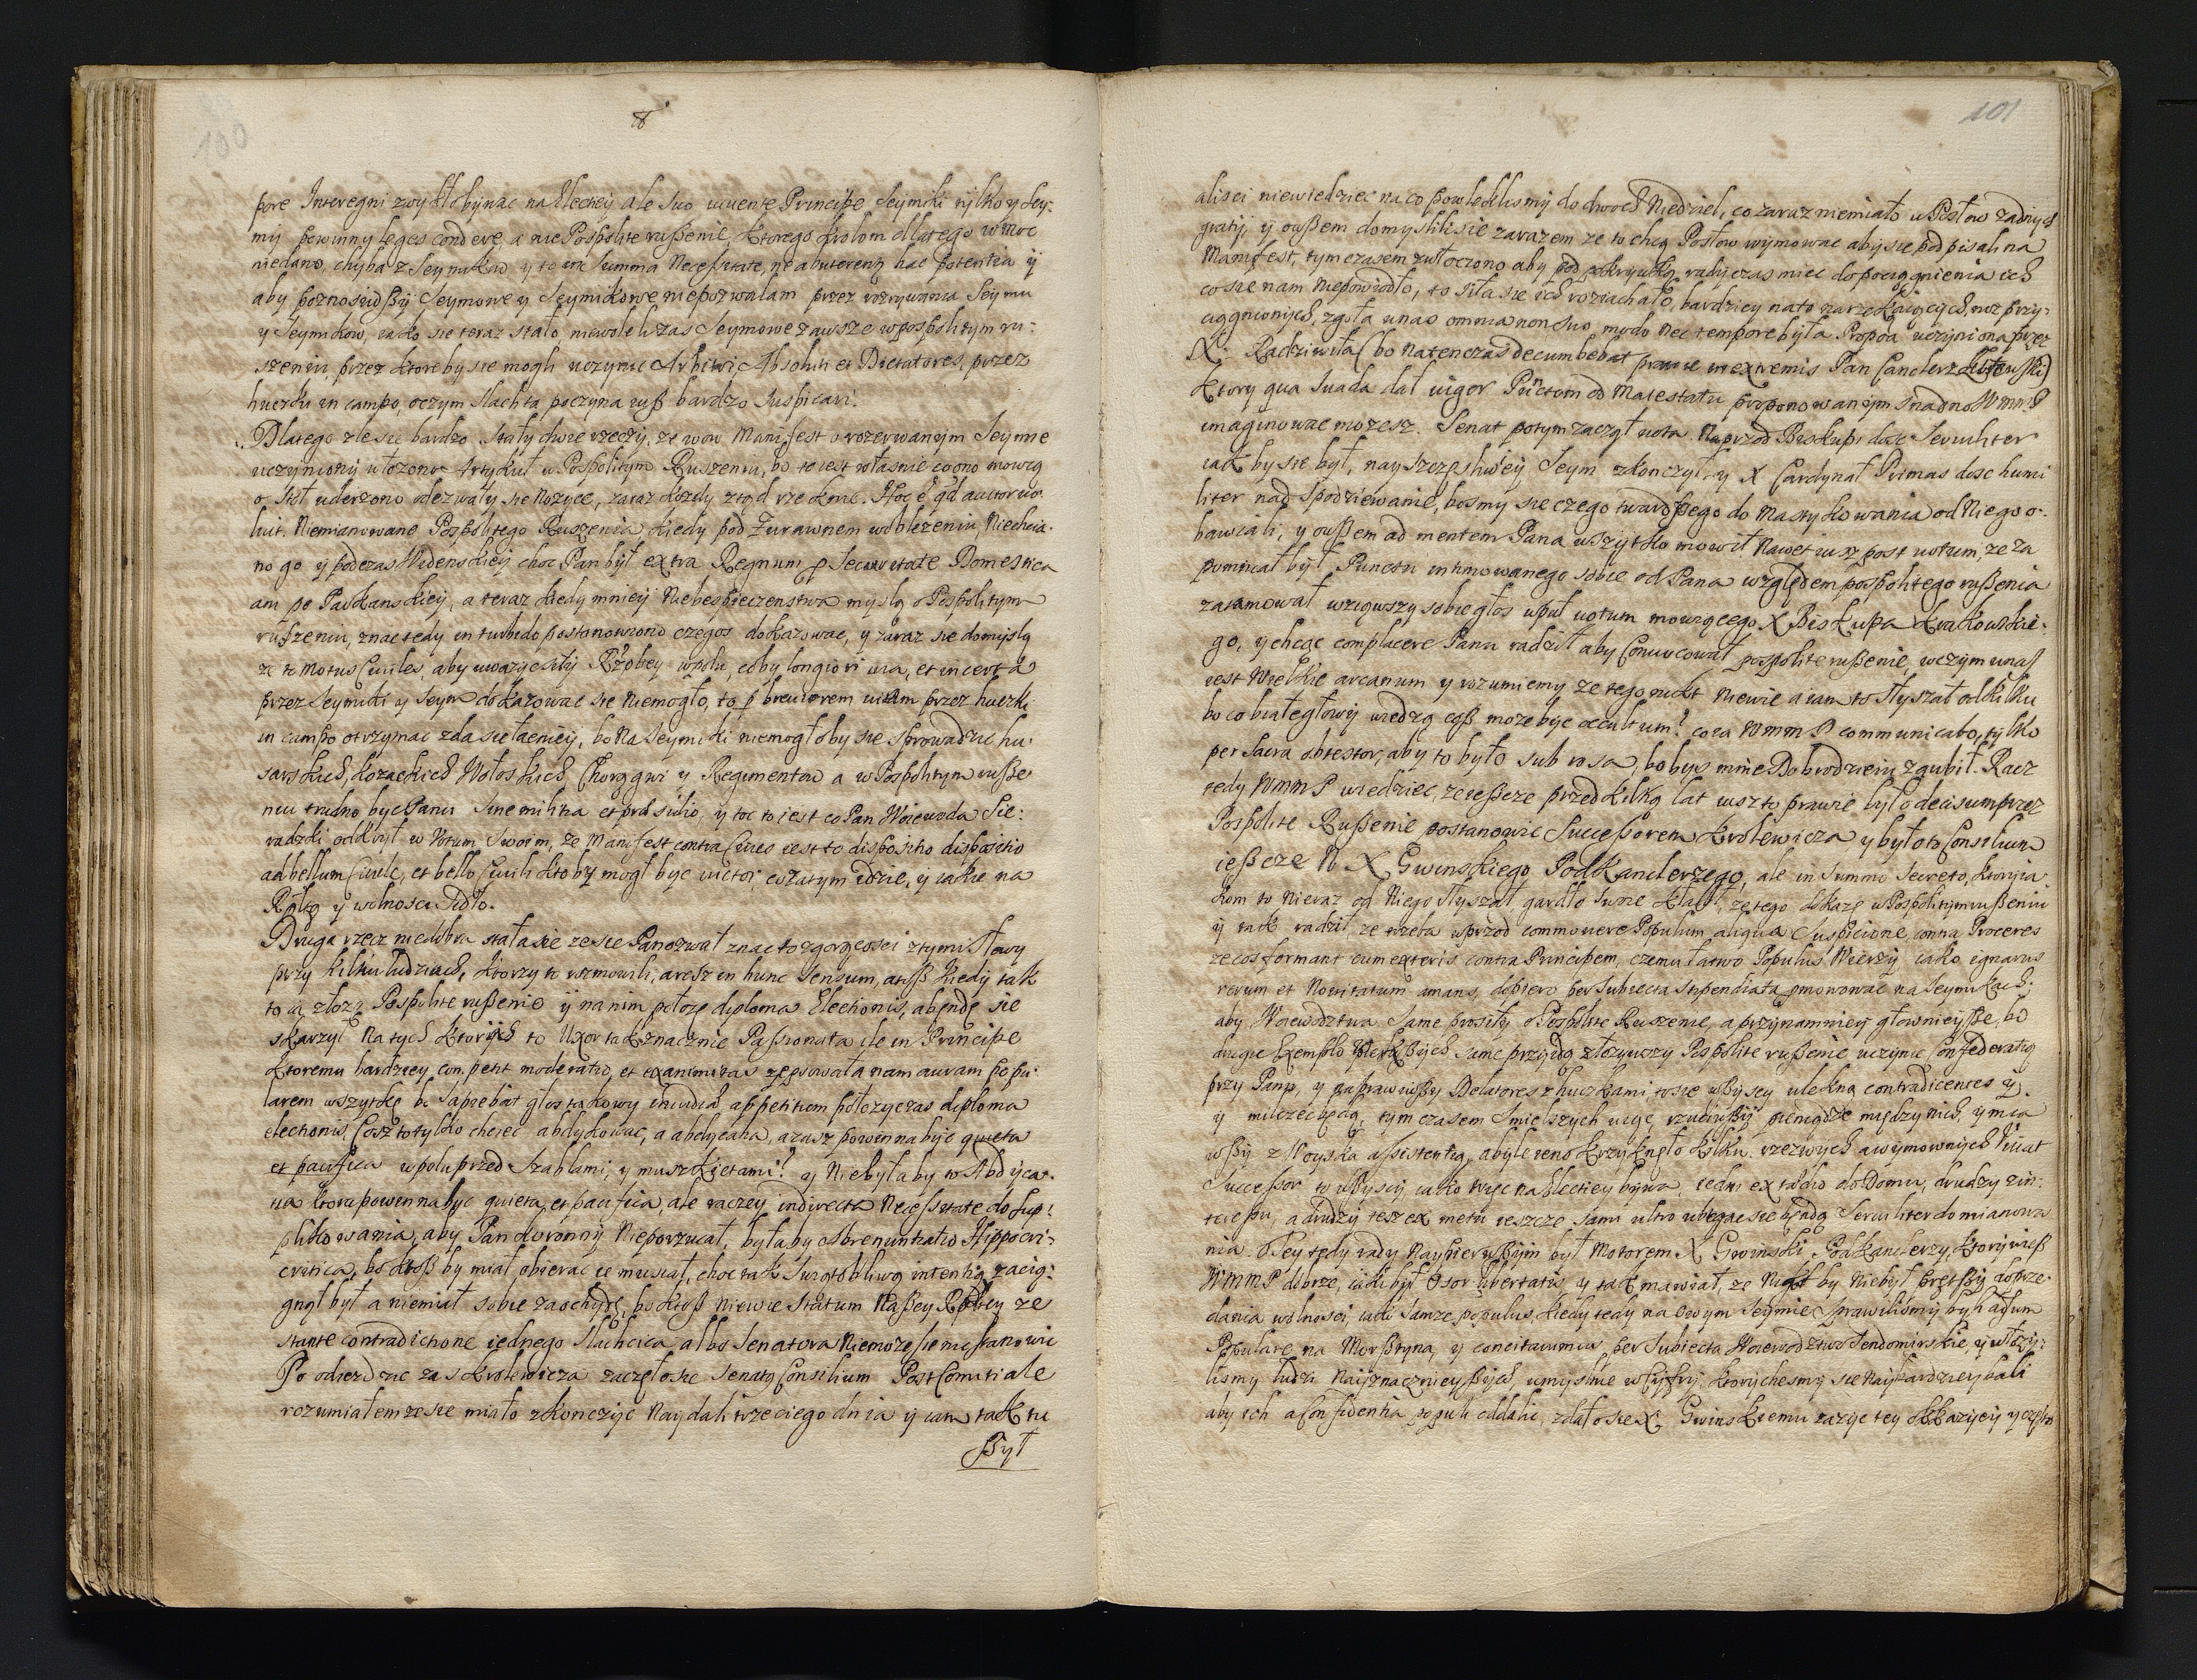 100
8
pore Interegni zwykł bywac na Elekciey ale suo vivente Principe Seymiki tylko y Sey:
my powinny leges condere, a nie Pospolite rußenie, ktorego krolom dlatego w moc
niedano, chyba z Seymu kiedy y to in summa Necessitate, ne abuterentur hac potentia y
aby poznosiwßy Seymowe y Seymikowe niepozwalam przez rozrywania Seymu
y Seymikow, iako sie teraz stało, niewoleli zas Seymowe zawsze w pospolitym ru:
szeniu, przez ktore by sie mogli uczynic Arbitri Absoluti et Dictatores, przez
huczki in campo, oczym Slachta poczyna iuß bardzo suspicari.
Dlatego zle sie bardzo stały dwie rzeczy, ze wow Manifest o rozerwanym Seymie
uczyniony ułozono Artykuł o Pospolitym Ruszeniu, bo to iest własnie co ono mowią
o stoł uderzono odezwały sie Nozyce, zaraz kozdy ztąd rzeknie. Hoc e qd auctor vo:
luit. Niemianowano Pospolitego Ruszenia kiedy pod Zurawnem w oblezeniu, Niechcia:
no go y podczas Widenskiey choc Pan był extra Regnum p securitate Domestica
ani po Parkanskiey, a teraz kiedy mniey Niebespieczenstwa myslą o Pospolitym
rußzeniu, znac tedy in turbido postanowiono czegos dokazowac, y zaraz sie domyslą
ze to Motus Civiles, aby uwazyc siły Rzpbey w polu, coby longiori via, et incerta
przez Seymiki y Seym dokazowac sie Niemogło, to p breviorem viam przez huczki
in campo otrzymac zda sie łacniey, bo na Seymiki niemogłoby sie sprowadzic hu:
sarskich, kozackich Wołoskich, Chorągwi y Regimentow a w Pospolitym ruße
niu trudno byc Panu sine militia et praesidio, y toc to iest co Pan Woiewoda Sie:
radzki odkrył w Votum swoim, ze Manifest contra Cives iest to dispositio dispositio
ad bellum Civile, et bello Civili ktoby mogł byc victor, cozatym idzie, y iakie na
Rzptą y wolnosci sidło.
Druga rzecz niedobra stała sie ze sie Pan ozwał znac to z gorącosci ztymi słowy
przy kilku ludziach, ktorzy to rozmowili, a resz in hunc sensum, atoß kiedy tak
to ia złozę Pospolite rußenie y na nim połozę diploma Electionis, a będę sie
skarzył Na tych ktorych to Uxor tak znacznie Passionata ile in Principe
ktoremu bardziey competit moderatio, et exanimitas zepsowała nam auram popu:
larem wszytkę bo sapiebat głos takowy invidiae appetitum połozyc zas diploma
electionis, Cosz to tylko chciec abdykowac, a abdycatia, azasz powinna byc quieta
et pacifica w polu przed szablami, y muszkietami? y Niebyłaby to Abdyca:
tia ktora powinna byc quieta, et pacifica, ale raczey indirecta Necessitate do sup:
plikowania, aby Pan korony Nieporzucał, byłaby Abrenuntiatio Hippocri:
critica, bo ktoß by miał obierac ie musiał, choc tak swątobliwą intentią zacią:
gnął był a niemiał sobie za ochydę, bo ktoß niewie statum Naßey Rzpbey ze
stante contradictione iednego slachcica albo Senatora Niemoze sie nic stanowic
Po odiezdzie zas krolewicza zaczęło sie Senatus Consilium PostComitiale
rozumiałem ze sie miało zkonczyc Naydali trzeciego dnia y iam tak tu
ßył
101
alisci niewiedziec na co powlekliśmy do dwoch Niedziel, co zaraz niemiało u Posłow zadnych
gratij, y oußem domyslili sie zarazem ze to chcą Posłow wymowac aby sie podpisali na
Manifest, tymczasem zwłoczono aby pod pokrywką rady czas miec do pociągnienia ich
co sie nam niepowiodło, to siła sie ich roziachało, bardziey na to narzekaiących, niz przy:
ciągnionych, zgoła unas omnia non suo modo nec tempore była Propoa uczyniona przez
X. Radziwiła (bo natenczas decumbebat prawie in extremis Pan Canclerz Litewski)
ktory qua suada dał vigor Punctom od Maiestatu proponowanym snadno WmmP
imaginowac mozesz. Senat potym zaczął vota. Naprzod Biskupi dosc serviliter
iak by sie był nayszczęsliwiey Seym zkonczył y X Cardynał Primas dosc humi
liter nad spodziewanie, bosmy sie czego twardßego do mastykowania od Niego o:
bawiali, y oußem ad mentem Pana wszytko mowił Nawet iusz post votum, ze za
pomniał był Punctu intimowanego sobie od Pana względem pospolitego rußenia
zatamował wziąwszy sobie głos w puł votum mowiącego X Biskupa krakowskie:
go, y chcąc complacere Panu radził aby Convocował pospolite rußenie, wczym unas
iest Wielkie arcanum y rozumiemy ze tego nickt Niewie a iam to słyszał od kilku
bo co białegłowy wiedzą coß moze byc occultum? co ia WmmP communicabo, tylko
per sacra obtestor, aby to było sub rosa, bobys mnie Dobrodzieiu zgubił. Racz
tedy WmmP wiedziec, ze ießcze przed kilką lat iusz to prawie było decisum przez
Pospolite Rußenie postanowic Successorem krolewicza y było to Consilium
ießcze N X Gninskiego Podkanclerzego, ale in summo secreto, ktory ia
kom to Nieraz od Niego słyszał gardło swoie kładł, ze tego dokaze w Pospolitym rußeniu
y tak radził, ze trzeba wprzod commovere Populum aliqua suspicione, contra Proceres
ze cos formant cum exteris contra Principem, czemu łatwo Populus Wierzy iako ignarus
rerum et Novitatum amans, dopiero per subiecta stipendiata pmowowac na Seymikach.
aby Woiewodztwa same prosiły o Pospolite Ruszenie, a przynamniey głownieyße, bo
drugie Exemplo Wiekßych same przyidą złozywszy Pospolite rußenie uczynic Confederatią
przy Panu, y naprawiwßy Delatores z huczkami to sie wßyscy ulękną contradicentes y
y milczec będą, tymczasem smielszych uiąc, rzuciwßy pieniądze między nich, y mia
wßy z Woyska assistentią, aby ieno krzyknęło kilku rzezwych a wymownych Vivat
Successor to wßyscy iako więc na Elekciey bywa, iedni ex taedio do domu, drudzy zin:
terepu, a drudzy tesz ex metu ieszcze sami ultro ubiegac sie będą serviliter do mianowa
nia. Tey tedy rady Naypierwßym był Motorem X Gninski Podkanclerzy, ktory wieß
WmmP dobrze, iaki był Osor libertatis y tak mawiał, ze Nickt by Niebył prętßy do prze:
dania wolnosci, iako samze populus, kiedy tedy na owym Seymie sprawiliśmy byli actum
Populare na Morßtyna, y concitavimus per subiecta Woiewodztwo Sendomirskie, y włozy:
lismy ludzi Nayznacznieyßych, umyslnie w Cyfry, ktorychesmy sie Naybardziey bali
aby ich a Confidentia populi oddalic, zdało sie X. Gninskiemu zazyc tey okkazyey y często